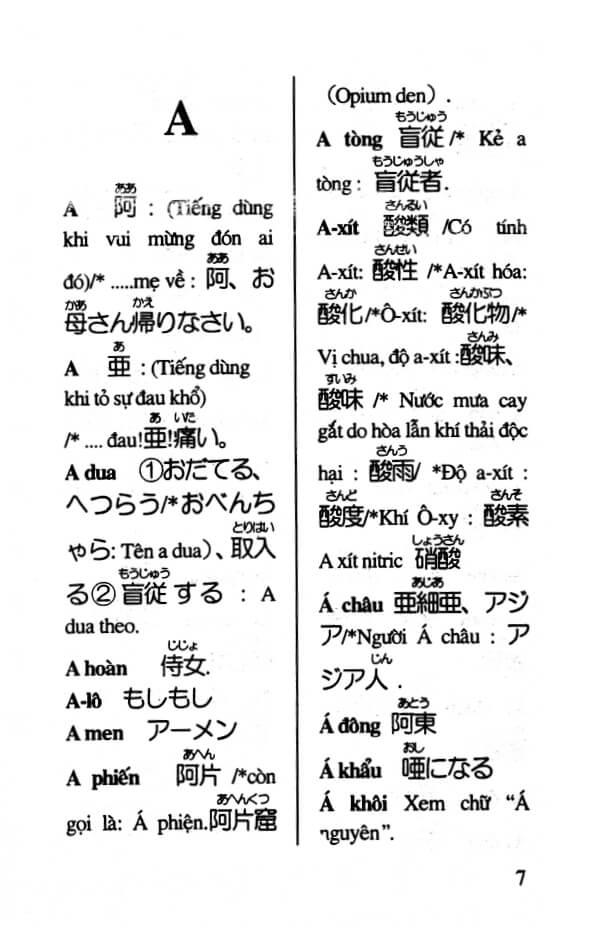 A
ああ
A 阿 : (Tiếng dùng
khi vui mừng đón ai
ああ
đó)/* .....mẹ về : 阿、お
かあ かえ
母さん帰りなさい。
あ
A 亜 : (Tiếng dùng
khi tỏ sự đau khổ)
あ いた
/* .... đau!亜!痛い。
A dua ①おだてる、
へつらう/*おべんち
とりはい
ゃら: Tên a dua)、取入
もうじゅう
る②盲従する : A
dua theo.
じじょ
A hoàn 侍女.
A-lô もしもし
A men アーメン
あへん
A phiến 阿片 /*còn
あへんくつ
gọi là: Á phiện.阿片窟
(Opium den) .
もうじゅう
A tòng 盲従/* Kẻ a
もうじゅうしゃ
tòng : 盲従者.
さんるい
A-xít 酸類 /Có tính
さんせい
A-xít: 酸性 /*A-xít hóa:
さんか さんかぶつ
酸化/*Ô-xít: 酸化物/*
さんみ
Vị chua, độ a-xít :酸味、
すいみ
酸味 /* Nước mưa cay
gắt do hòa lẫn khí thải độc
さんう
hại : 酸雨/ *Độ a-xít :
さんど さんそ
酸度/*Khí Ô-xy : 酸素
しょうさん
A xít nitric 硝酸
あじあ
Á châu 亜細亜、アジ
ア/*Người Á châu : ア
じん
ジア人 .
あとう
Á đông 阿東
おし
Á khẩu 唖になる
Á khôi Xem chữ “Á
nguyên”.
7